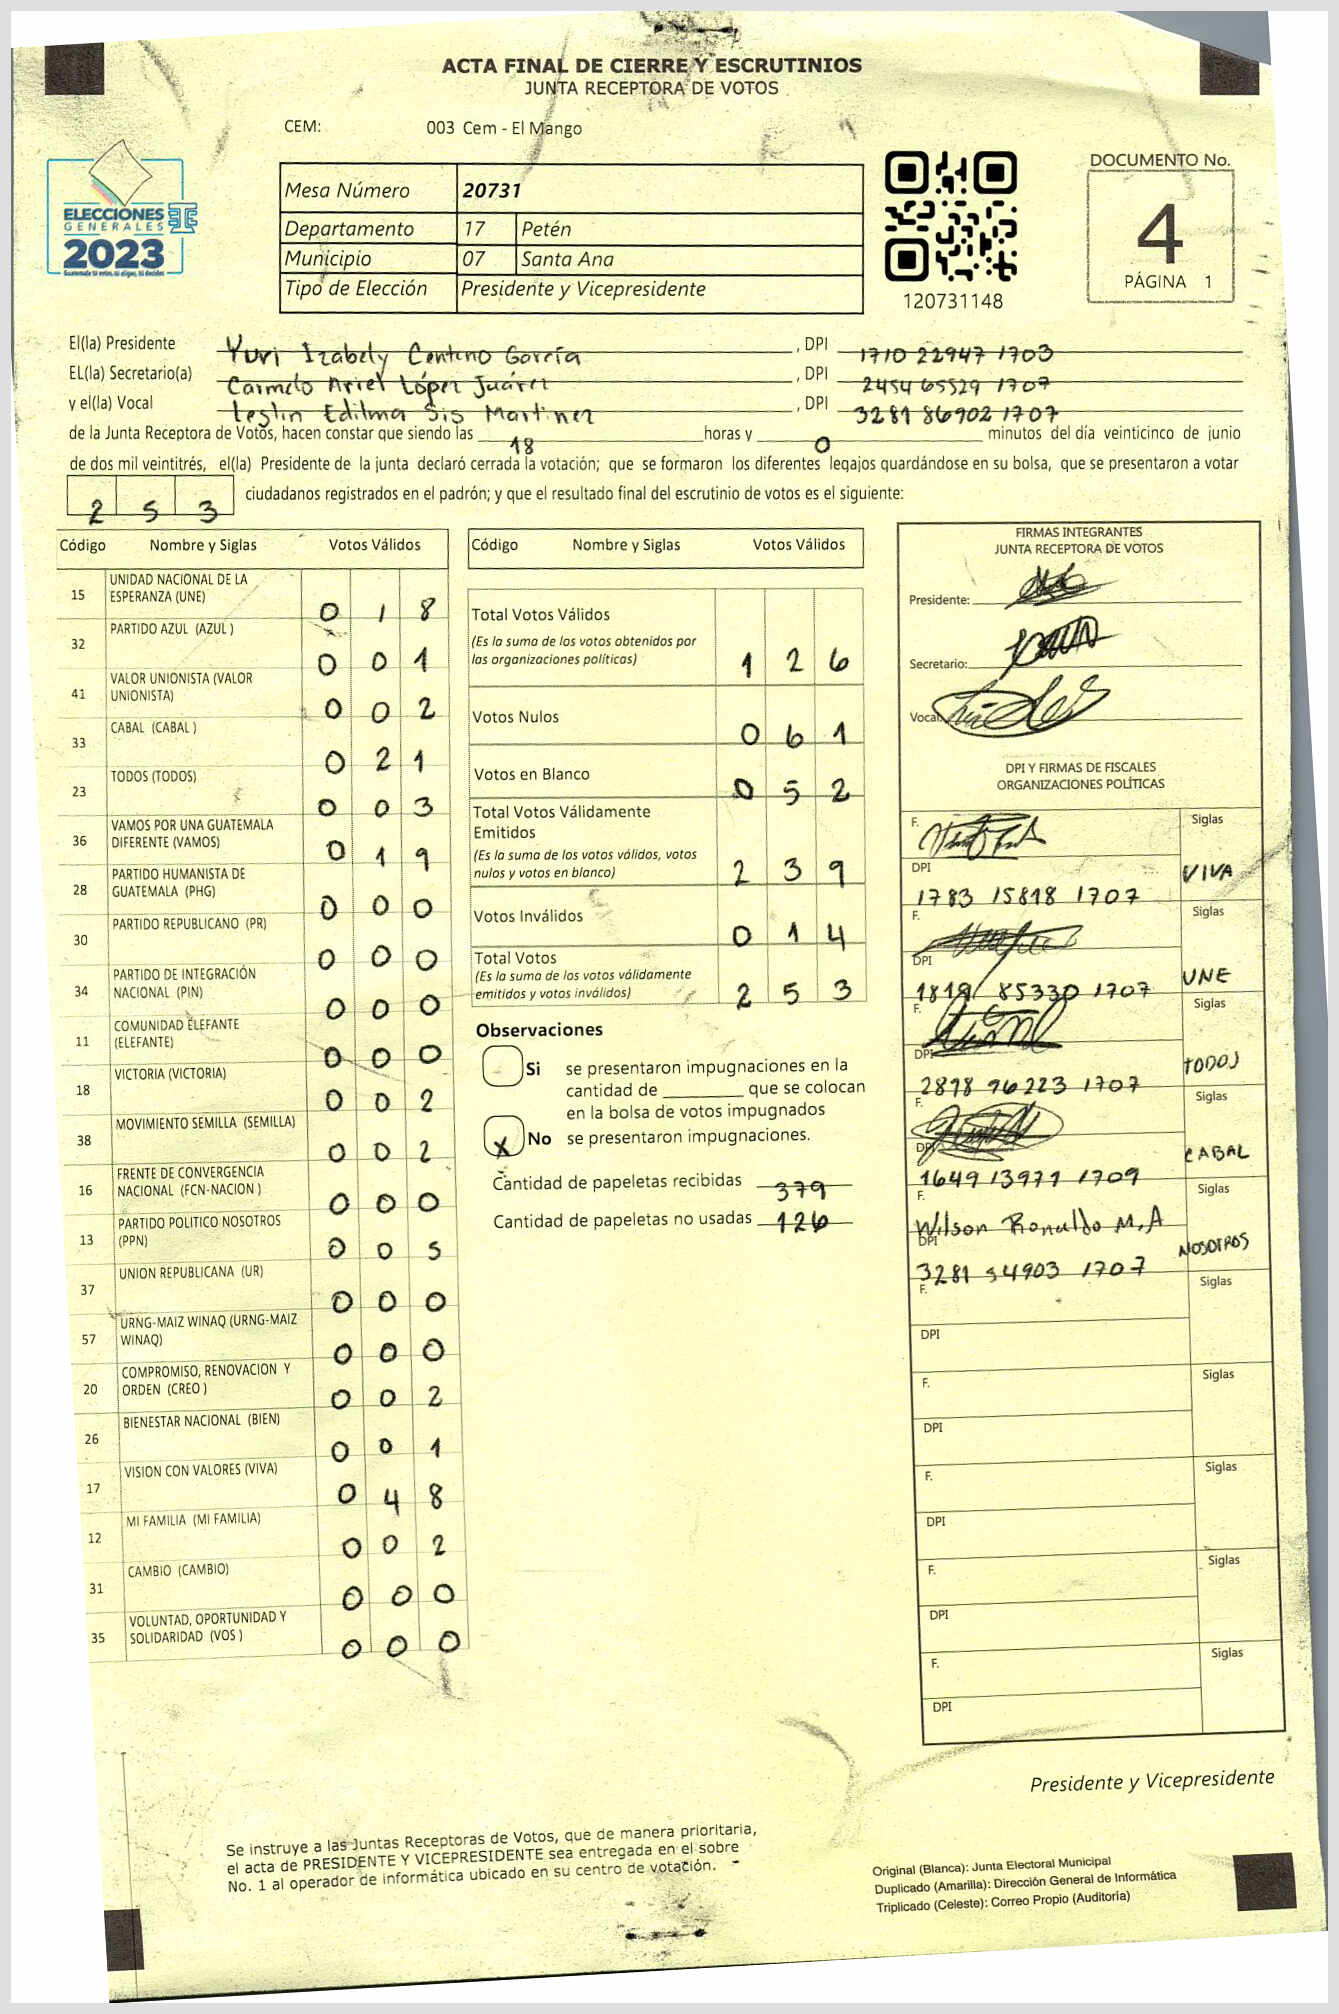 ACTA FINAL DE CIERRE Y ESCRUTINIOS
JUNTA RECEPTORA DE VOTOS
CEM: 003 Cem - El Mango
ELECCIONES
GENERALES
2023
Guatemala tú votas, tú eliges, tú decides
Mesa Número 20731
Departamento 17 Petén
Municipio 07 Santa Ana
Tipo de Elección Presidente y Vicepresidente
120731148
DOCUMENTO No.
4
PÁGINA 1
El(la) Presidente Yuri Izabely Centeno García , DPI 1710 22947 1703
EL(la) Secretario(a) Carmelo Ariel López Juárez , DPI 2454 65529 1707
y el(la) Vocal Leslin Edilma Sis Martinez , DPI 3281 86902 1707
de la Junta Receptora de Votos, hacen constar que siendo las 18 horas y 0 minutos del día veinticinco de junio
de dos mil veintitrés, el(la) Presidente de la junta declaró cerrada la votación; que se formaron los diferentes legajos quardándose en su bolsa, que se presentaron a votar
253 ciudadanos registrados en el padrón; y que el resultado final del escrutinio de votos es el siguiente:
Código Nombre y Siglas Votos Válidos
15 UNIDAD NACIONAL DE LA ESPERANZA (UNE) 018
32 PARTIDO AZUL (AZUL ) 001
41 VALOR UNIONISTA (VALOR UNIONISTA) 002
33 CABAL (CABAL ) 021
23 TODOS (TODOS) 003
36 VAMOS POR UNA GUATEMALA DIFERENTE (VAMOS) 019
28 PARTIDO HUMANISTA DE GUATEMALA (PHG) 000
30 PARTIDO REPUBLICANO (PR) 000
34 PARTIDO DE INTEGRACIÓN NACIONAL (PIN) 000
11 COMUNIDAD ELEFANTE (ELEFANTE) 000
18 VICTORIA (VICTORIA) 002
38 MOVIMIENTO SEMILLA (SEMILLA) 002
16 FRENTE DE CONVERGENCIA NACIONAL (FCN-NACION ) 000
13 PARTIDO POLITICO NOSOTROS (PPN) 005
37 UNION REPUBLICANA (UR) 000
57 URNG-MAIZ WINAQ (URNG-MAIZ WINAQ) 000
20 COMPROMISO, RENOVACION Y ORDEN (CREO ) 002
26 BIENESTAR NACIONAL (BIEN) 001
17 VISION CON VALORES (VIVA) 048
12 MI FAMILIA (MI FAMILIA) 002
31 CAMBIO (CAMBIO) 000
35 VOLUNTAD, OPORTUNIDAD Y SOLIDARIDAD (VOS ) 000
Código Nombre y Siglas Votos Válidos
Total Votos Válidos 126
(Es la suma de los votos obtenidos por
las organizaciones políticas)
Votos Nulos 061
Votos en Blanco 052
Total Votos Válidamente
Emitidos 239
(Es la suma de los votos válidos, votos
nulos y votos en blanco)
Votos Inválidos 014
Total Votos 253
(Es la suma de los votos válidamente
emitidos y votos inválidos)
Observaciones
Si se presentaron impugnaciones en la
cantidad de ________ que se colocan
en la bolsa de votos impugnados
X No se presentaron impugnaciones.
Cantidad de papeletas recibidas 379
Cantidad de papeletas no usadas 126
FIRMAS INTEGRANTES
JUNTA RECEPTORA DE VOTOS
Presidente:
Secretario:
Vocal
DPI Y FIRMAS DE FISCALES
ORGANIZACIONES POLÍTICAS
F. Siglas
DPI VIVA
1783 15818 1707
F. Siglas
DPI UNE
1819 85330 1707
F. Siglas
DPI TODOS
2898 96223 1707
F. Siglas
DPI CABAL
1649 13971 1709
F. Siglas
Wilson Ronaldo M.A
DPI NOSOTROS
3281 54903 1707
F. Siglas
DPI
F. Siglas
DPI
F. Siglas
DPI
F. Siglas
DPI
F. Siglas
DPI
Presidente y Vicepresidente
Se instruye a las Juntas Receptoras de Votos, que de manera prioritaria,
el acta de PRESIDENTE Y VICEPRESIDENTE sea entregada en el sobre
No. 1 al operador de informática ubicado en su centro de votación.
Original (Blanca): Junta Electoral Municipal
Duplicado (Amarilla): Dirección General de Informática
Triplicado (Celeste): Correo Propio (Auditoría)